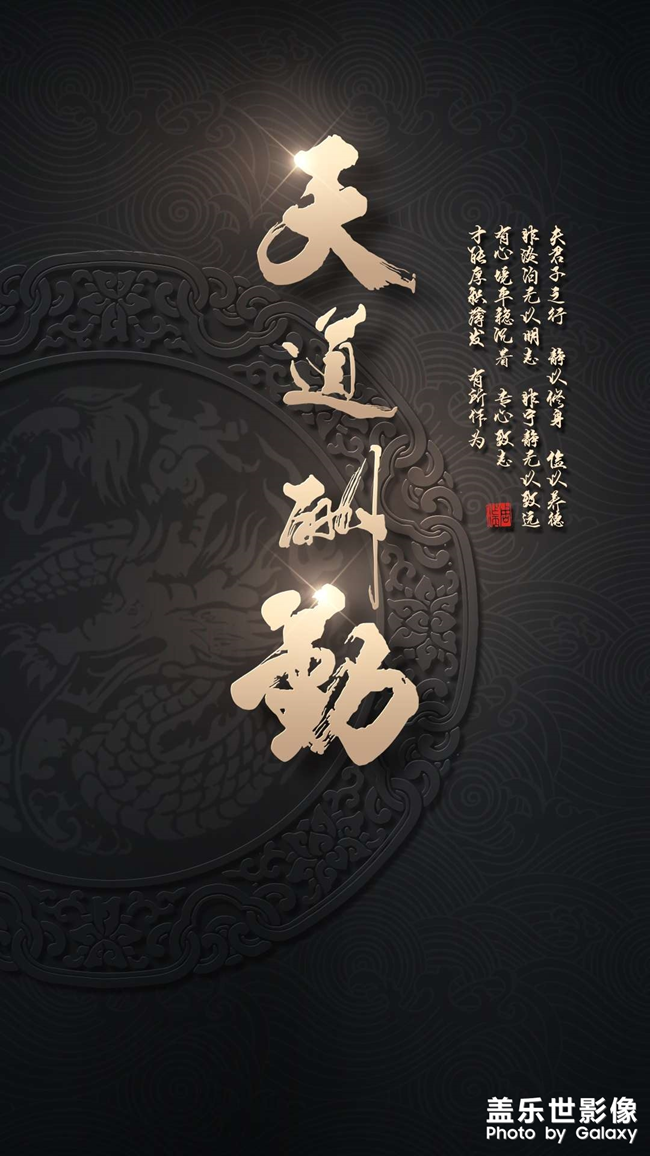 天道酬勤
夫君子之行 静以修身 俭以养德
非淡泊无以明志 非宁静无以致远
有心境平稳沉着 专心致志
才能厚积薄发 有所作为
盖乐世影像
Photo by Galaxy